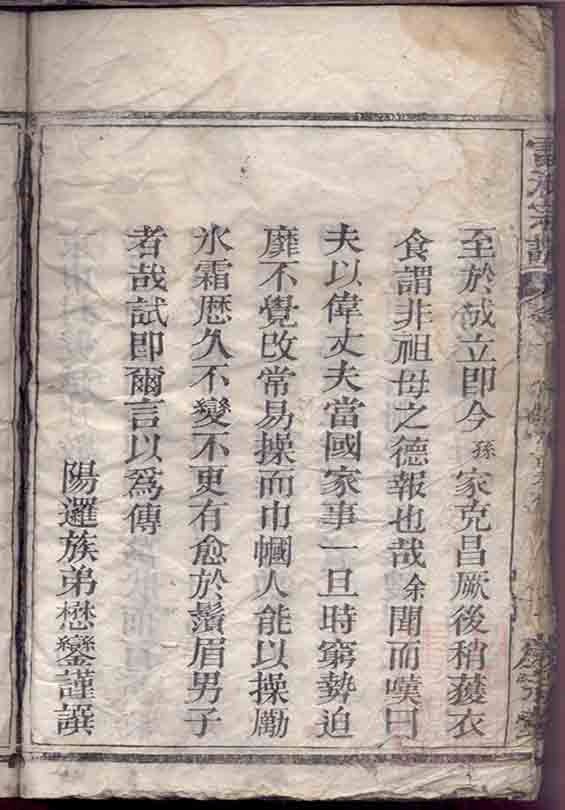 至於成立即今孫家克昌厥後稍蒦衣
食謂非祖母之德報也哉余聞而嘆曰
夫以偉丈夫當國家事一旦時窮勢迫
靡不覺改常易操而巾幗人能以操勵
氷霜歴久不變不更有愈於鬚眉男子
者哉試即爾言以爲傳
陽邏族弟懋鑾謹譔